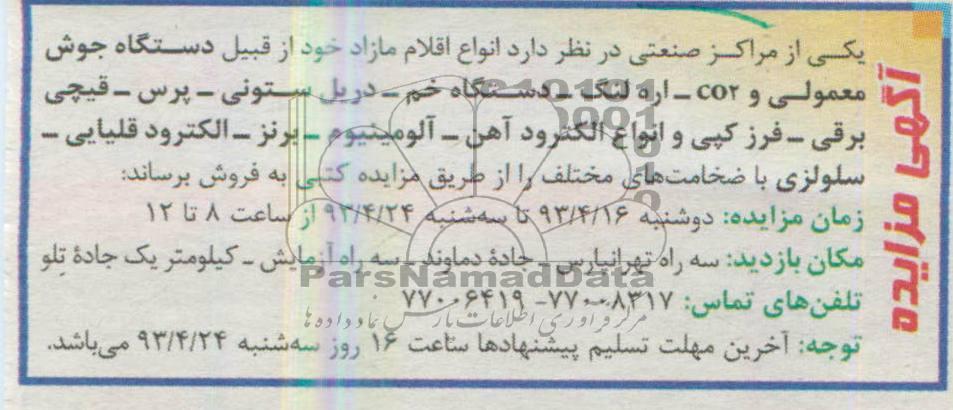 آگهی مزایده
یکی از مراکز صنعتی در نظر دارد انواع اقلام مازاد خود از قبیل دستگاه جوش
معمولی و CO۲ ـ اره لنگ ـ دستگاه خم ـ دریل ستونی ـ پرس ـ قیچی
برقی ـ فرز کپی و انواع الکترود آهن ـ آلومینیوم ـ برنز ـ الکترود قلیایی ـ
سلولزی با ضخامت‌های مختلف را از طریق مزایده کتبی به فروش برساند:
زمان مزایده: دوشنبه ۹۳/۴/۱۶ تا سه‌شنبه ۹۳/۴/۲۴ از ساعت ۸ تا ۱۲
مکان بازدید: سه راه تهرانپارس ـ جادۀ دماوند ـ سه راه آزمایش ـ کیلومتر یک جادۀ تِلو
تلفن‌های تماس: ۷۷۰۰۸۳۱۷- ۷۷۰۰۶۴۱۹
توجه: آخرین مهلت تسلیم پیشنهادها ساعت ۱۶ روز سه‌شنبه ۹۳/۴/۲۴ می‌باشد.
ParsNamadData
مرکز فرآوری اطلاعات پارس نماد داده ها